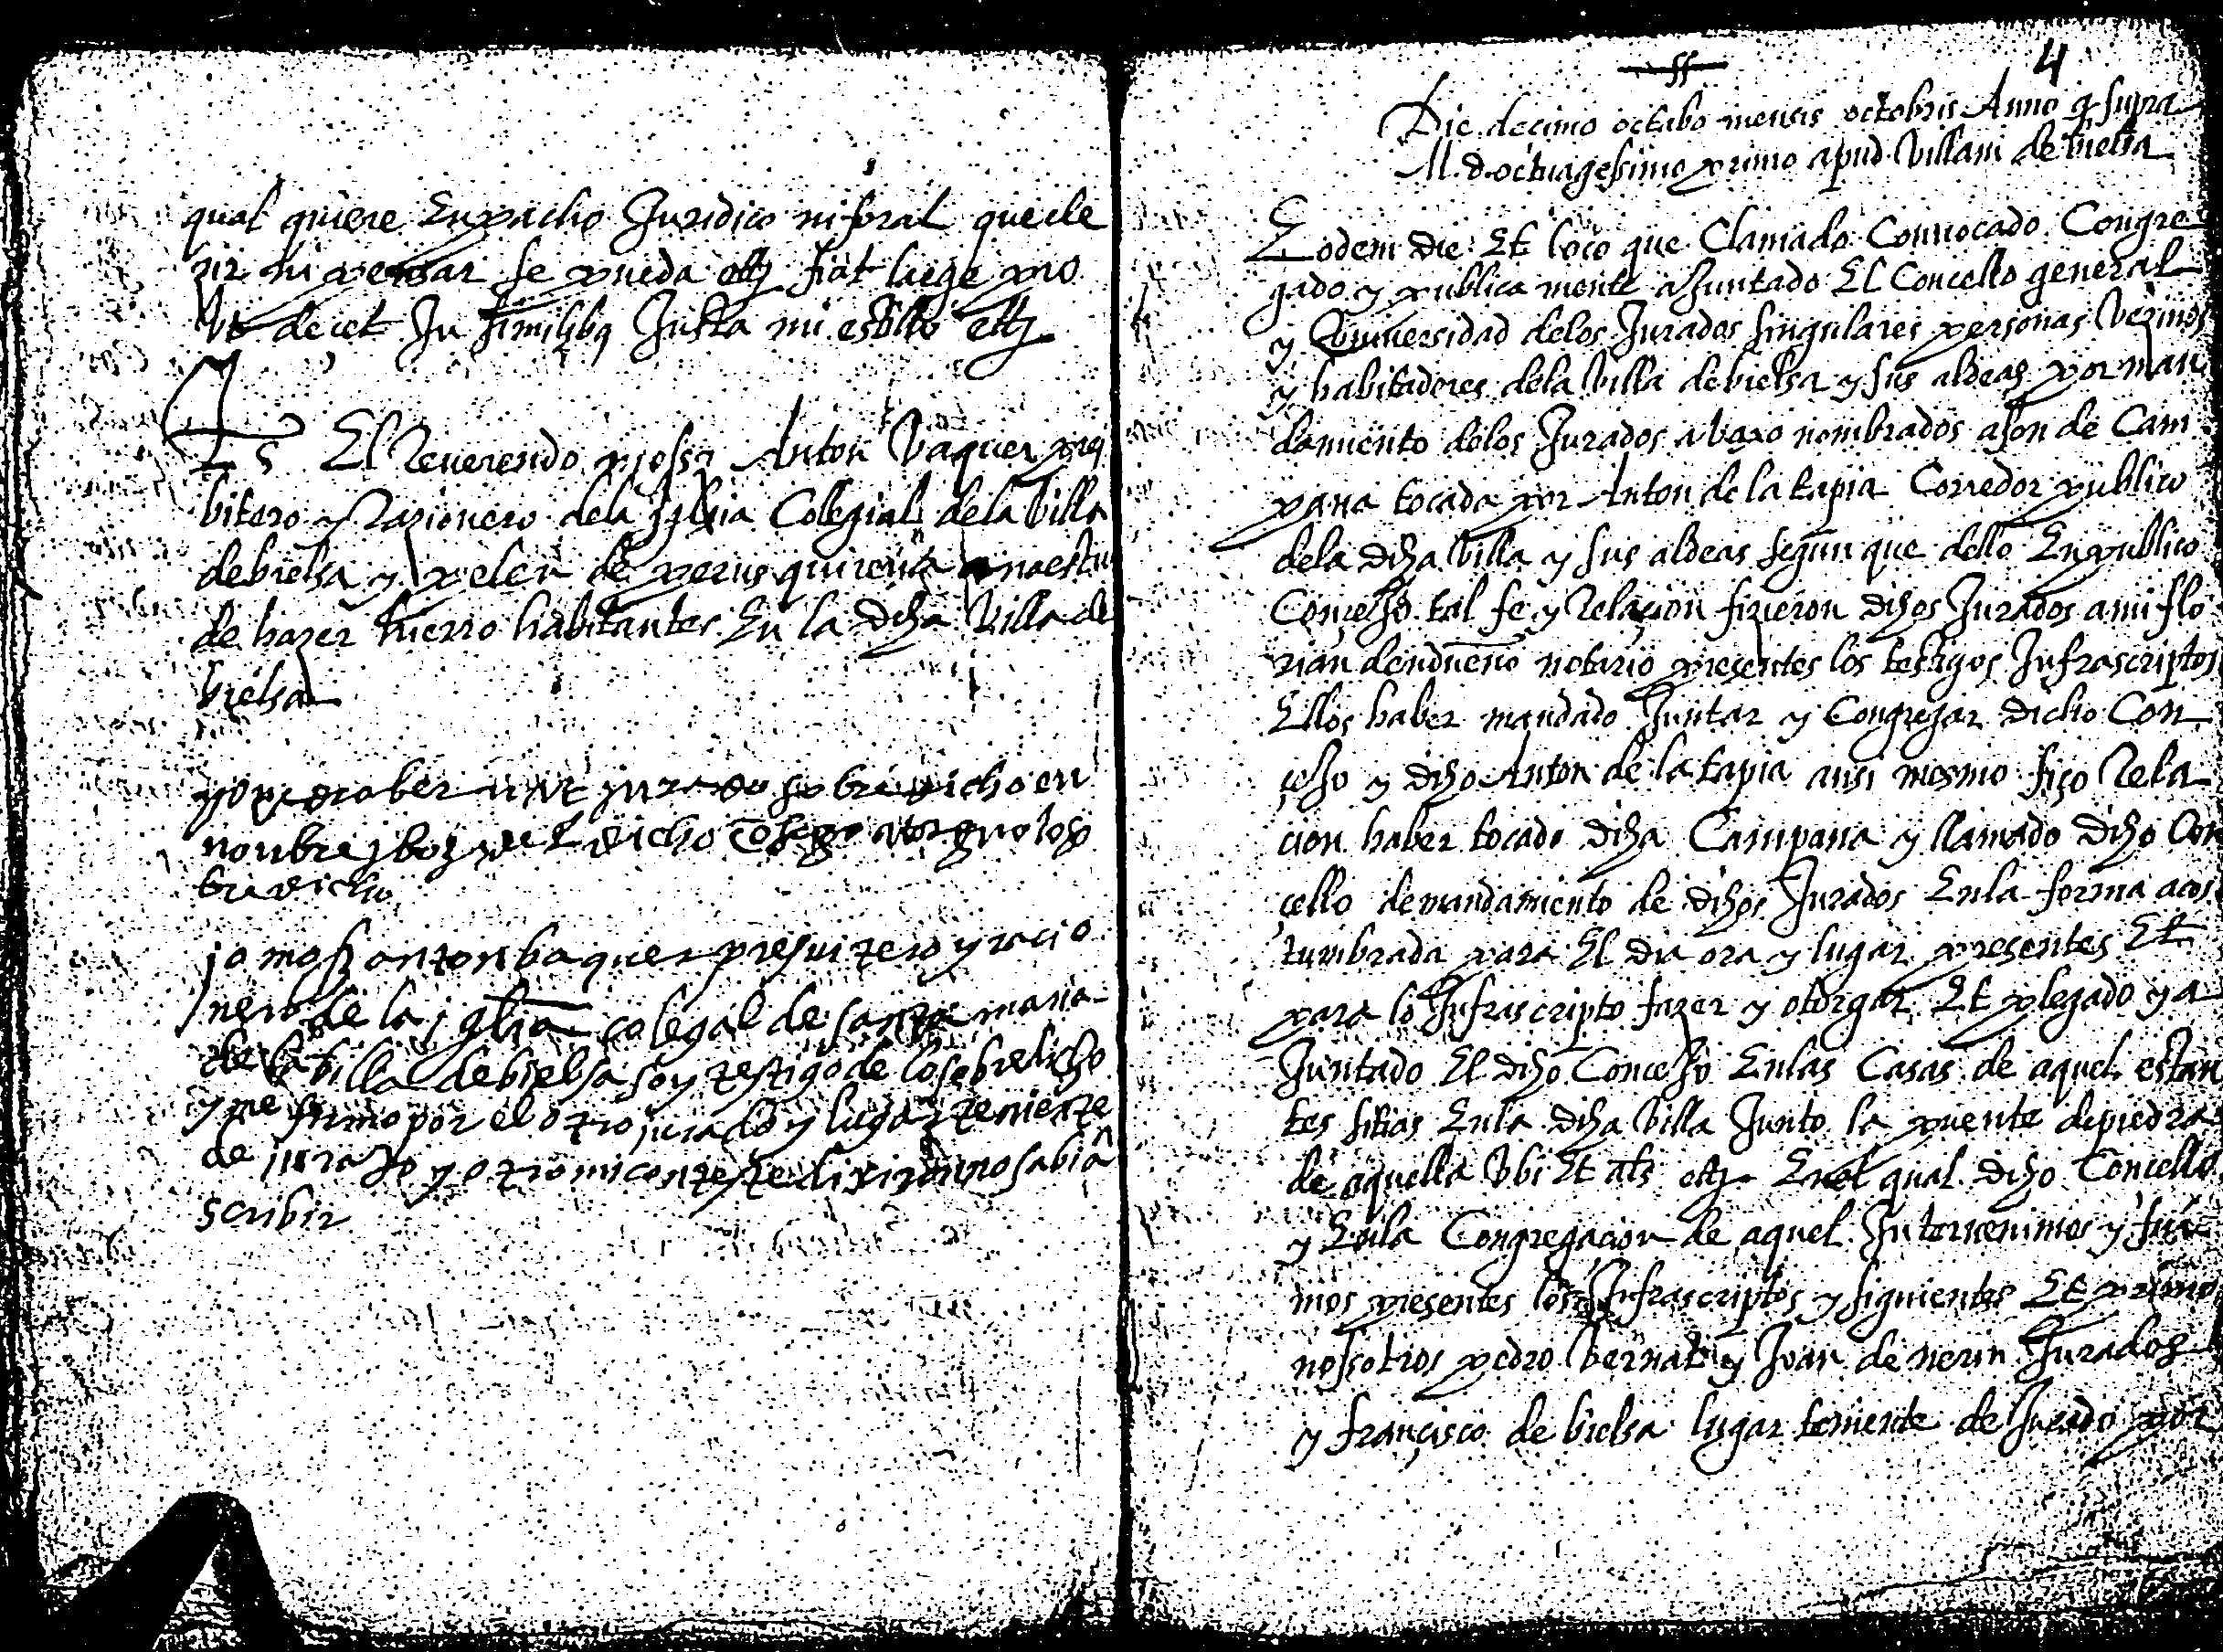 qual quiere Enpacho Juridico ni foral que de
zir ni pensar se pueda etc fiat large pro
Vt decet In similibus Justa mi estillo etc
Ts El Reuerendo mossen Anton Vaquer pres
bitero y Razionero dela Jglesia Colegial dela Villa
debielsa y maestro
de hazer hierro habitantes En la dicha Villa de
bielsa
jurado sobre dicho en
nonbre y boz del dicho otorguo lo so
bre dicho
jo mosen anton baquer presuitero y racio
nero de la iglesia colegial de santa maria
de la billa debielsa soy testigo de lo sobredicho
y me firmo por el otro jurado y lugarteniente
de jurado y otro mi conteste dixiron no sabian
scribir
4
ss
Die decimo octabo mensis octobris Anno q supra
M. d. octuagesimo primo apud Villam de bielsa
Eodem die Et loco que Clamado Conuocado Congre
gado y publica mente aJuntado El Concello general
y Vniuersidad delos Jurados singulares personas Vezinos
y habitadores dela Villa debielsa y sus aldeas por man
damiento delos Jurados abaxo nombrados a son de Cam
pana tocada por Anton de la tapia Corredor publico
dela dicha Villa y sus aldeas segun que dello En publico
Concejo tal fe y Relaçion fizieron dichos Jurados a mi flo
rian dendueño notario presentes los testigos Jnfrascriptos
Ellos haber mandado Juntar y Congregar dicho Con
çejo y dicho Anton de la tapia ansi mesmo fiço Rela
cion haber tocado dicha Campana y llamado dicho Con
çello de mandamiento de dichos Jurados Enla forma acos
tumbrada para El dia ora y lugar presentes Et
para lo Jnfrascripto fazer y otorgar Et plegado y a
Juntado El dicho Concejo Enlas Casas de aquel estan
tes sitias Enla dicha Villa Junto la puente de piedra
de aquella Vbi Et als etc Enel qual dicho Concello
y Enla Congregacion de aquel Interuenimos y fui
mos presentes los Jnfrascriptos y siguientes Et primo
nosotros pedro Vernat y Joan de nerin Jurados
y françisco de bielsa lugar teniente de Jurado por